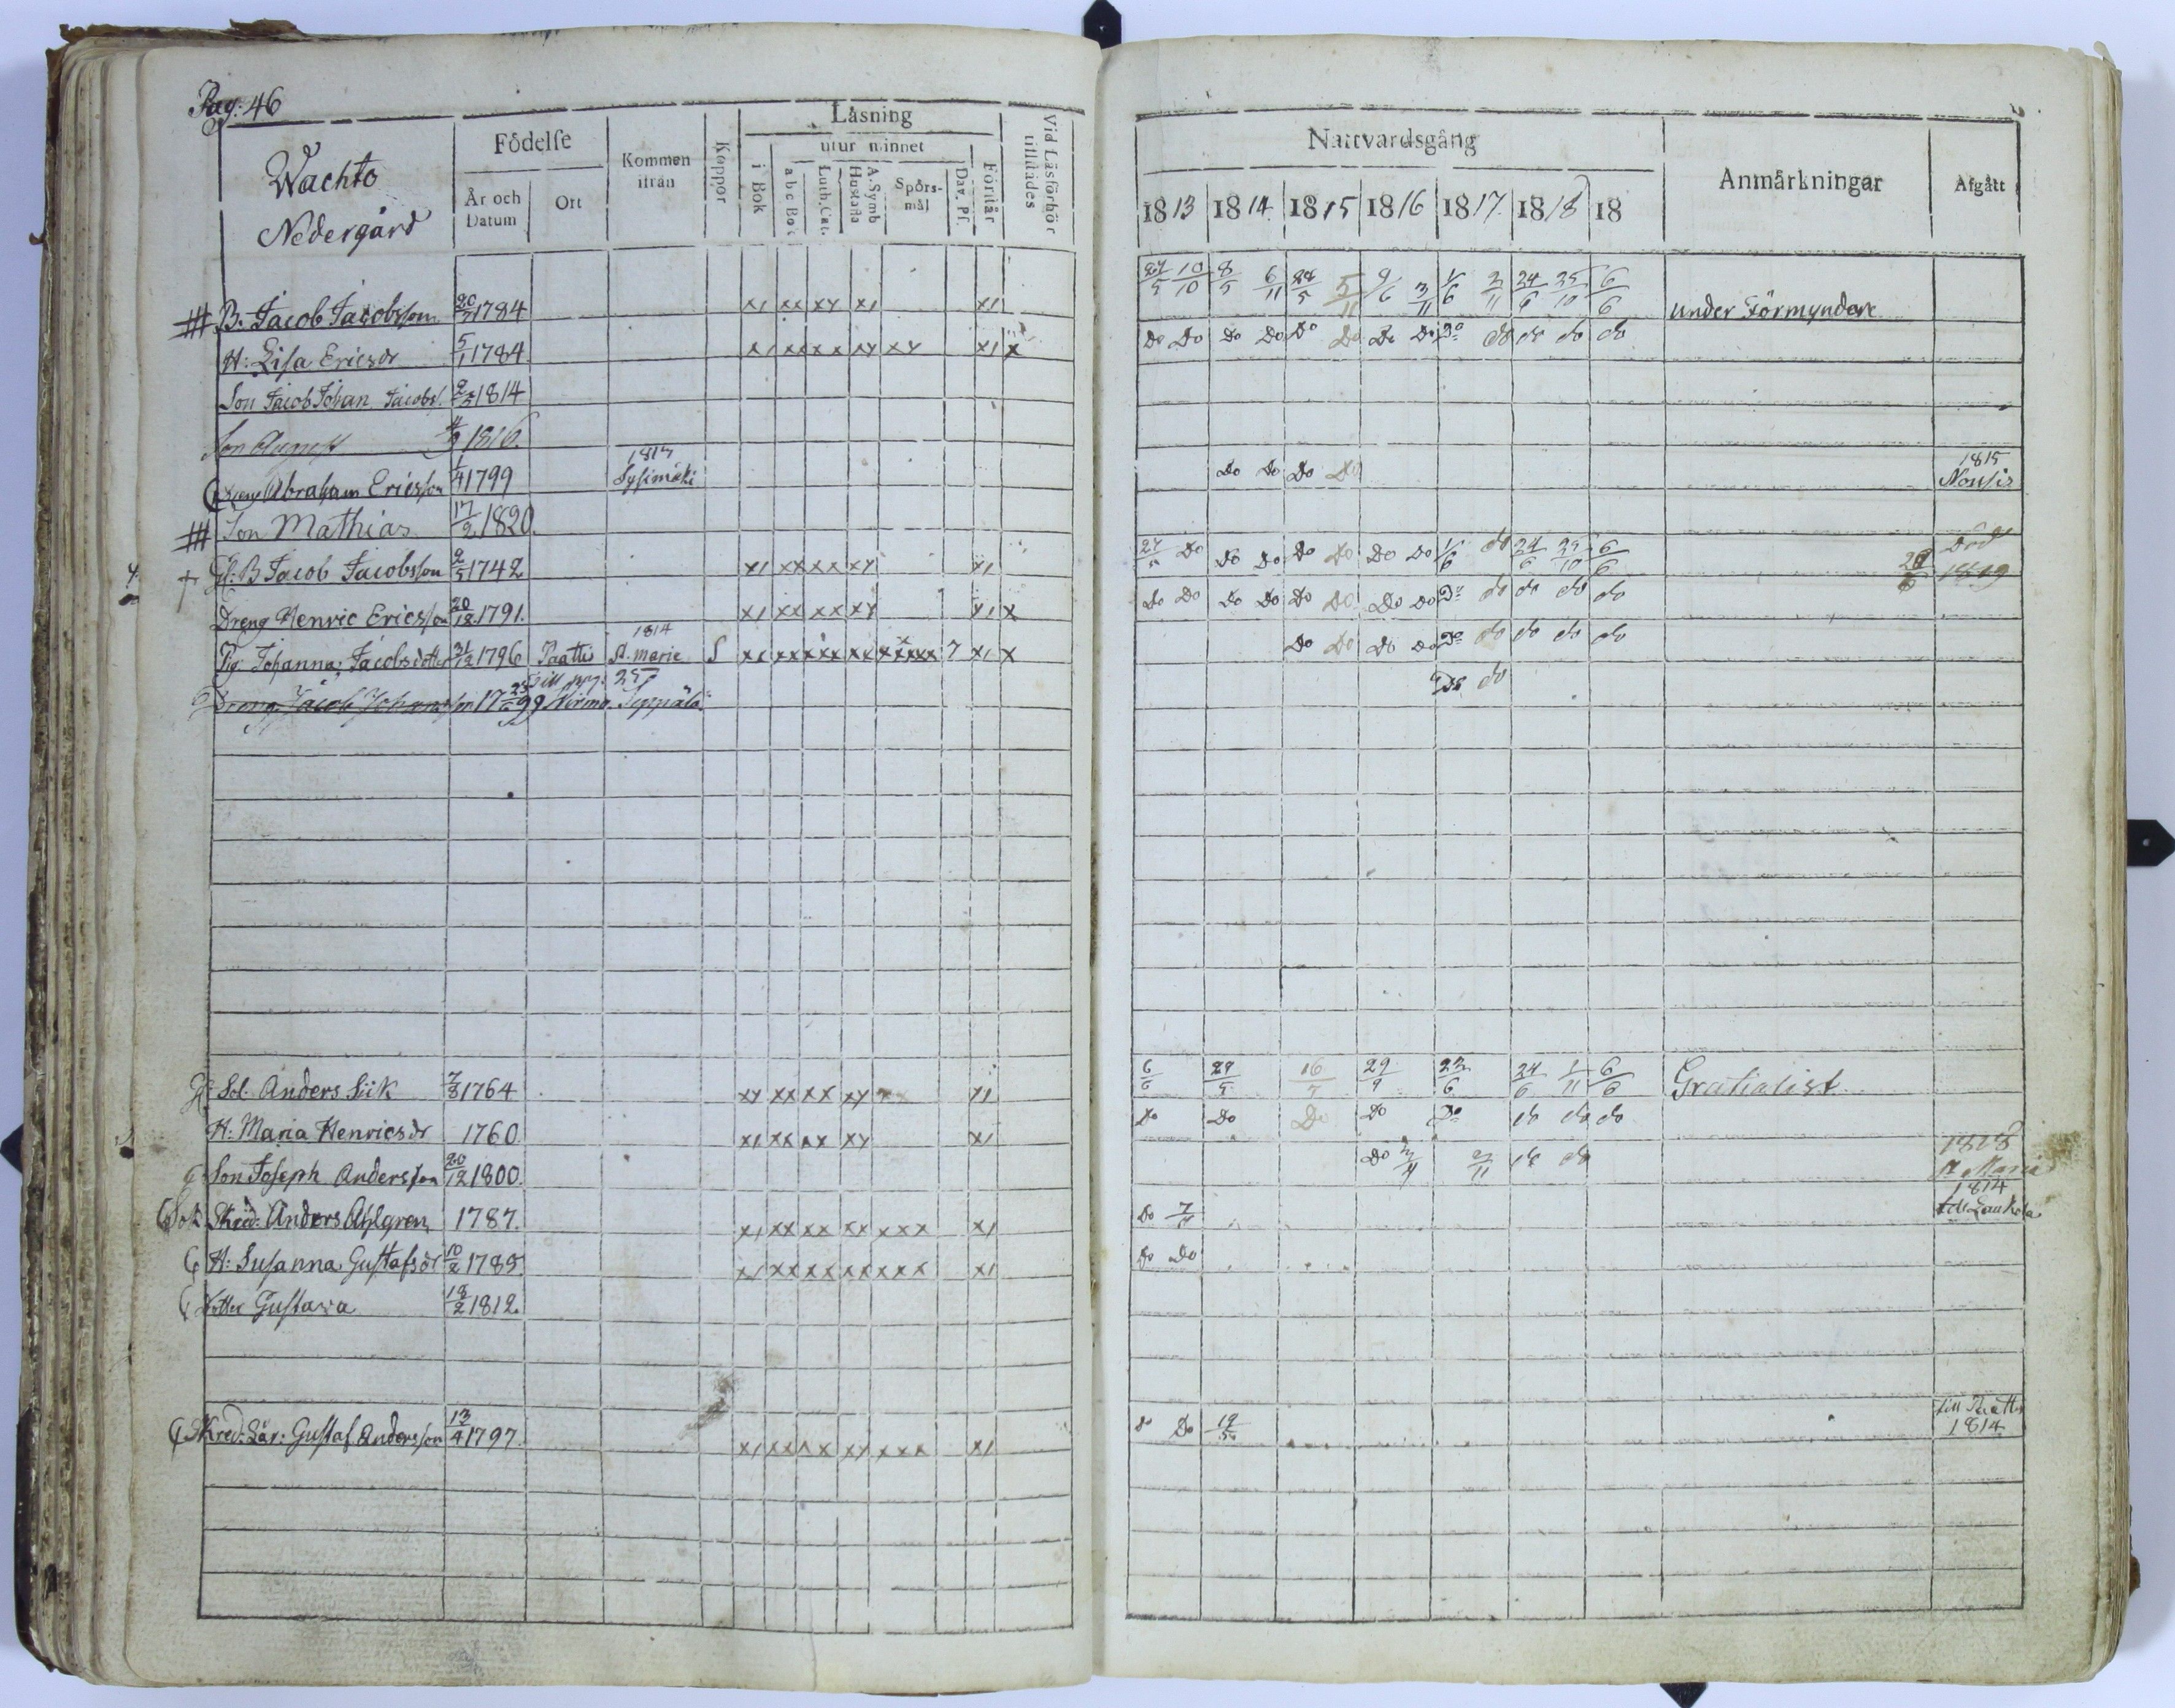 Pag. 46
Wachto
Nedergård
Födelse
År och Datum
Ort
Kommen ifrån
Koppor
Läsning
utur minnet
i Bok
a b c Bok
Luth. Cat.
A. Symb Hustafla
Spörsmål
Dav. Ps.
Förstår
Vid Läsförhör tillstädes
Nattvardsgång
1813 1814. 1815 1816 1817. 1818 18
Anmärkningar
Afgått
B. Jacob Jacobsson 20/7 1784 x1 xx xy x1 x1 27/5 10/10 8/5 6/11 28/5 5/11 9/6 3/11 1/6 2/11 24/6 25/10 6/6 under Förmyndare
H: Lisa Ericsdr 5/1 1784 x1 xx xx xy xy x1 x Do Do Do Do Do Do Do Do Do do do do do
Son Jacob Johan Jacobs. 1814
Son August 1816.
Dreng Abraham Ericsson 1/4 1799 1814 Sysimäki Do Do Do Do 1815 Nousis
Son Mathias 17/2 1820.
Gl: B Jacob Jacobsson 2/5 1742 x1 xx xx xy x1 27/5 Do Do Do Do Do Do Do 1/6 do 24/6 25/10 6/6 Död 1819
Dreng Henric Ericsson 20/12 1791. x1 xx xx xy x1 x Do Do Do Do Do Do Do Do Do do do do do
Pig: Johanna Jacobsdotter 31/12 1796 Paatti 1814 St. marie S xx xx xx xx xxxxx 7 x1 x Do Do Do Do Do do do do do
till pag. 257
Dreng Jacob Johansson 1799 Virmo Seppälä Do do
Sol. Anders Siik 7/3 1764 xy xx xx xy x1 6/6 29/5 16/5 29/9 23/6 24/6 1/11 6/6 Gratialist
H: Maria Henricsdr 1760. x1 xx xx xy x1 Do Do Do Do Do do do do
Son Joseph Andersson 20/12 1800. Do 3/11 2/11 do do 1818 St Maria
Sok. Skräd: Anders Ahlgren 1787. x1 xx xx xx xxx x1 Do 7/11 1814 till Laukola
H: Susanna Gustafsdr 10/2 1785. x1 xx xx xx xxx x1 Do Do
Dotter Gustava 18/2 1812.
Skred: Lär: Gustaf Andersson 13/4 1797. x1 xx xx xy xxx x1 Do Do till Paatti 1814